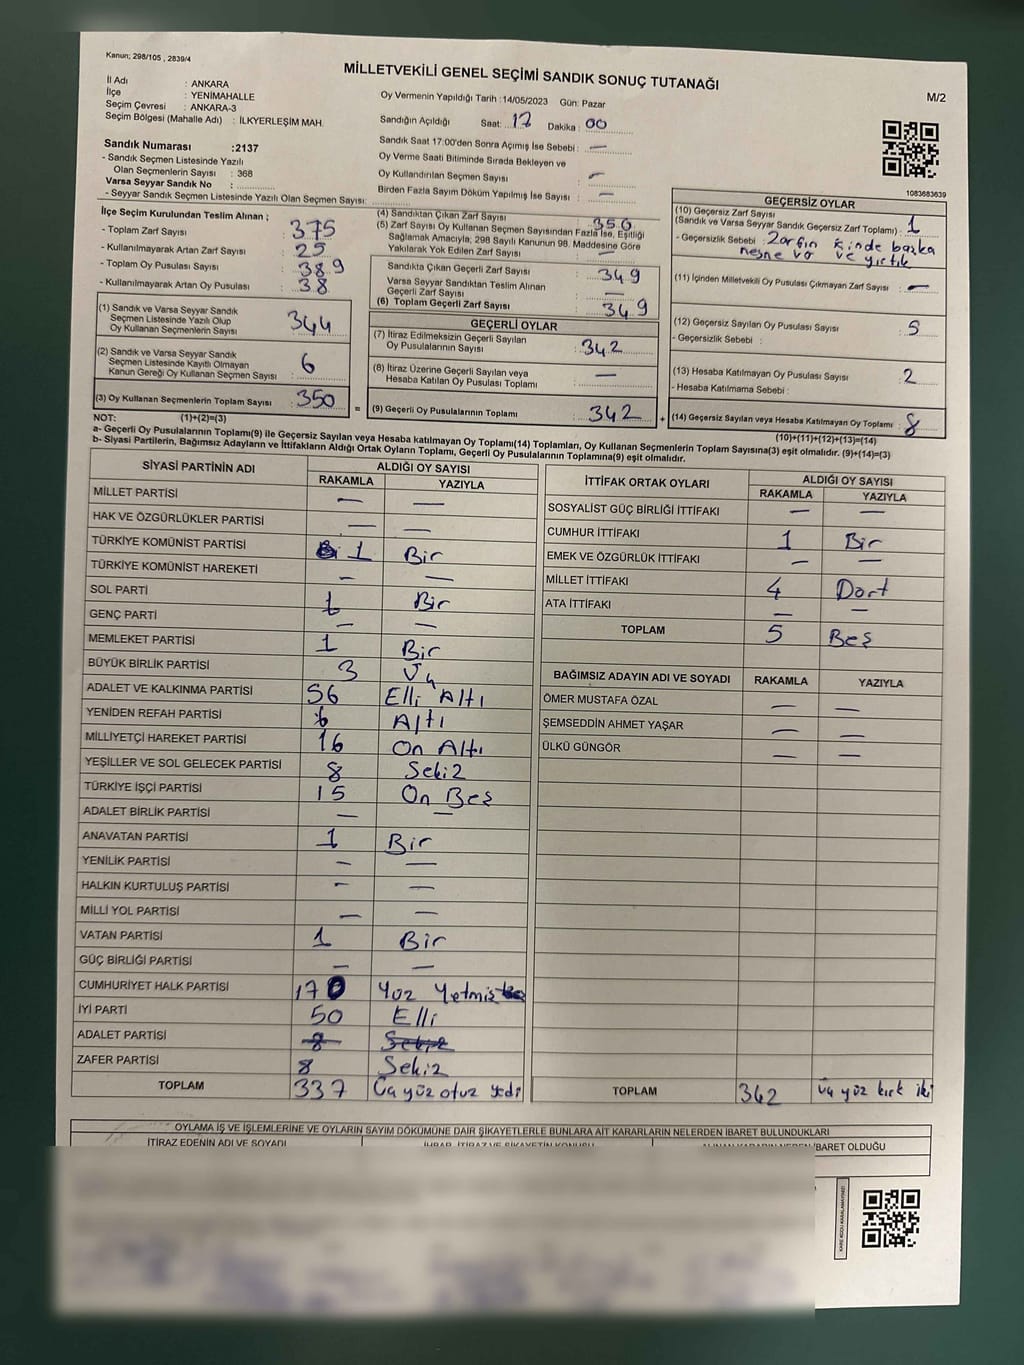 Kanun; 298/105 , 2839/4
MİLLETVEKİLİ GENEL SEÇİMİ SANDIK SONUÇ TUTANAĞI
M/2
İl Adı : ANKARA
İlçe : YENİMAHALLE
Seçim Çevresi : ANKARA-3
Seçim Bölgesi (Mahalle Adı) : İLKYERLEŞİM MAH.
Oy Vermenin Yapıldığı Tarih :14/05/2023 Gün: Pazar
Sandığın Açıldığı Saat: 17 Dakika : 00
Sandık Saat 17:00'den Sonra Açımış İse Sebebi : —
Oy Verme Saati Bitiminde Sırada Bekleyen ve
Oy Kullandırılan Seçmen Sayısı : —
Birden Fazla Sayım Döküm Yapılmış İse Sayısı : —
Sandık Numarası :2137
- Sandık Seçmen Listesinde Yazılı
Olan Seçmenlerin Sayısı : 368
Varsa Seyyar Sandık No :
- Seyyar Sandık Seçmen Listesinde Yazılı Olan Seçmen Sayısı:
1083683639
İlçe Seçim Kurulundan Teslim Alınan ;
- Toplam Zarf Sayısı : 375
- Kullanılmayarak Artan Zarf Sayısı : 25
- Toplam Oy Pusulası Sayısı : 389
- Kullanılmayarak Artan Oy Pusulası : 38
(1) Sandık ve Varsa Seyyar Sandık
Seçmen Listesinde Yazılı Olup
Oy Kullanan Seçmenlerin Sayısı : 344
(2) Sandık ve Varsa Seyyar Sandık
Seçmen Listesinde Kayıtlı Olmayan
Kanun Gereği Oy Kullanan Seçmen Sayısı : 6
(3) Oy Kullanan Seçmenlerin Toplam Sayısı : 350
(4) Sandıktan Çıkan Zarf Sayısı : 350
(5) Zarf Sayısı Oy Kullanan Seçmen Sayısından Fazla İse, Eşitliği
Sağlamak Amacıyla; 298 Sayılı Kanunun 98. Maddesine Göre
Yakılarak Yok Edilen Zarf Sayısı : —
Sandıkta Çıkan Geçerli Zarf Sayısı : 349
Varsa Seyyar Sandıktan Teslim Alınan
Geçerli Zarf Sayısı : —
(6) Toplam Geçerli Zarf Sayısı : 349
GEÇERLİ OYLAR
(7) İtiraz Edilmeksizin Geçerli Sayılan
Oy Pusulalarının Sayısı : 342
(8) İtiraz Üzerine Geçerli Sayılan veya
Hesaba Katılan Oy Pusulası Toplamı : —
= (9) Geçerli Oy Pusulalarının Toplamı : 342 +
GEÇERSİZ OYLAR
(10) Geçersiz Zarf Sayısı
(Sandık ve Varsa Seyyar Sandık Geçersiz Zarf Toplamı) : 1
- Geçersizlik Sebebi : Zarfın içinde başka
nesne var ve yırtık
(11) İçinden Milletvekili Oy Pusulası Çıkmayan Zarf Sayısı : —
(12) Geçersiz Sayılan Oy Pusulası Sayısı : 5
- Geçersizlik Sebebi :
(13) Hesaba Katılmayan Oy Pusulası Sayısı : 2
- Hesaba Katılmama Sebebi :
(14) Geçersiz Sayılan veya Hesaba Katılmayan Oy Toplamı : 8
NOT: (1)+(2)=(3)
(10)+(11)+(12)+(13)=(14)
a- Geçerli Oy Pusulalarının Toplamı(9) ile Geçersiz Sayılan veya Hesaba katılmayan Oy Toplamı(14) Toplamları, Oy Kullanan Seçmenlerin Toplam Sayısına(3) eşit olmalıdır. (9)+(14)=(3)
b- Siyasi Partilerin, Bağımsız Adayların ve İttifakların Aldığı Ortak Oyların Toplamı, Geçerli Oy Pusulalarının Toplamına(9) eşit olmalıdır.
SİYASİ PARTİNİN ADI ALDIĞI OY SAYISI
RAKAMLA YAZIYLA
MİLLET PARTİSİ — —
HAK VE ÖZGÜRLÜKLER PARTİSİ — —
TÜRKİYE KOMÜNİST PARTİSİ 1 Bir
TÜRKİYE KOMÜNİST HAREKETİ — —
SOL PARTİ 1 Bir
GENÇ PARTİ — —
MEMLEKET PARTİSİ 1 Bir
BÜYÜK BİRLİK PARTİSİ 3 Üç
ADALET VE KALKINMA PARTİSİ 56 Elli Altı
YENİDEN REFAH PARTİSİ 6 Altı
MİLLİYETÇİ HAREKET PARTİSİ 16 On Altı
YEŞİLLER VE SOL GELECEK PARTİSİ 8 Sekiz
TÜRKİYE İŞÇİ PARTİSİ 15 On Beş
ADALET BİRLİK PARTİSİ — —
ANAVATAN PARTİSİ 1 Bir
YENİLİK PARTİSİ — —
HALKIN KURTULUŞ PARTİSİ — —
MİLLİ YOL PARTİSİ — —
VATAN PARTİSİ 1 Bir
GÜÇ BİRLİĞİ PARTİSİ — —
CUMHURİYET HALK PARTİSİ 170 Yüz Yetmiş
İYİ PARTİ 50 Elli
ADALET PARTİSİ 8 Sekiz
ZAFER PARTİSİ 8 Sekiz
TOPLAM 337 Üç yüz otuz yedi
İTTİFAK ORTAK OYLARI ALDIĞI OY SAYISI
RAKAMLA YAZIYLA
SOSYALİST GÜÇ BİRLİĞİ İTTİFAKI — —
CUMHUR İTTİFAKI 1 Bir
EMEK VE ÖZGÜRLÜK İTTİFAKI — —
MİLLET İTTİFAKI 4 Dört
ATA İTTİFAKI — —
TOPLAM 5 Beş
BAĞIMSIZ ADAYIN ADI VE SOYADI RAKAMLA YAZIYLA
ÖMER MUSTAFA ÖZAL — —
ŞEMSEDDİN AHMET YAŞAR — —
ÜLKÜ GÜNGÖR — —
TOPLAM 342 Üç yüz kırk iki
OYLAMA İŞ VE İŞLEMLERİNE VE OYLARIN SAYIM DÖKÜMÜNE DAİR ŞİKAYETLERLE BUNLARA AİT KARARLARIN NELERDEN İBARET BULUNDUKLARI
İTİRAZ EDENİN ADI VE SOYADI İHBAR, İTİRAZ VE ŞİKAYETİN KONUSU İBARET OLDUĞU